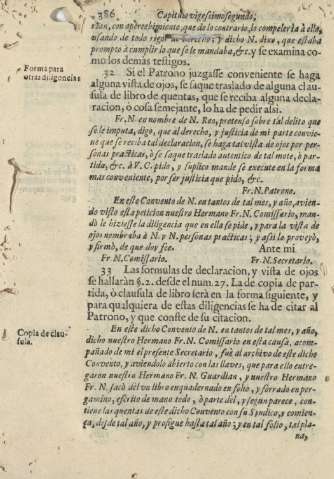 386 Capitulo vigesimosegundo,
cion, con apercebimiento, que de lo contrario, lo compelería à ella,
usando de todo rigor de derecho; y dicho N. dixo, que estaba
prompto à cumplir lo que se le mandaba, &c. y se examina co-
mo los demàs testigos.
Forma para otras diligencias
32 Si el Patrono juzgasse conveniente se haga
alguna vista de ojos, se saque traslado de alguna clau-
sula de libro de quentas, que se reciba alguna decla-
racion, ò cosa semejante, lo ha de pedir assi.
Fr. N. en nombre de N. Reo, pretenso sobre tal delito que
se le imputa, digo, que al derecho, y justicia de mi parte convie-
ne que se reciba tal declaracion, se haga tal vista de ojos por per-
sonas practicas, ò se saque traslado autentico de tal mote, ò par-
tida, &c. à V. C. pido, y suplico mande se execute en la forma
mas conveniente, por ser justicia que pido, &c.
Fr. N. Patrono.
En este Convento de N. en tantos de tal mes, y año, avien-
do visto esta peticion nuestro Hermano Fr. N. Comissario, man-
dò se hiziesse la diligencia que en ella se pide, y para la vista de
ojos nombraba à N. y N. personas practicas; y assi lo proveyò,
y firmò, de que doy fee. Ante mi
Fr. N. Comissario. Fr. N. Secretario.
33 Las formulas de declaracion, y vista de ojos
se hallaràn §. 2. desde el num. 27. La de copia de par-
tida, ò clausula de libro serà en la forma siguiente, y
para qualquiera de estas diligencias se ha de citar al
Patrono, y que conste de su citacion.
Copia de clau-
sula.
En este dicho Convento de N. en tantos de tal mes, y año,
dicho nuestro Hermano Fr. N. Comissario en esta causa, acom-
pañado de mi el presente Secretario, fuè al archivo de este dicho
Convento, y aviendolo abierto con las llaves, que para ello entre-
garon nuestro Hermano Fr. N. Guardian, y nuestro Hermano
Fr. N. sacò dèl un libro enquadernado en folio, y forrado en per-
gamino, escrito de mano todo, ò parte dèl, y segun parece, con-
tiene las quentas de este dicho Convento con su Syndico, y comien-
ça, desde tal año, y prosigue hasta tal año; y en tal folio, tal pla-
na,